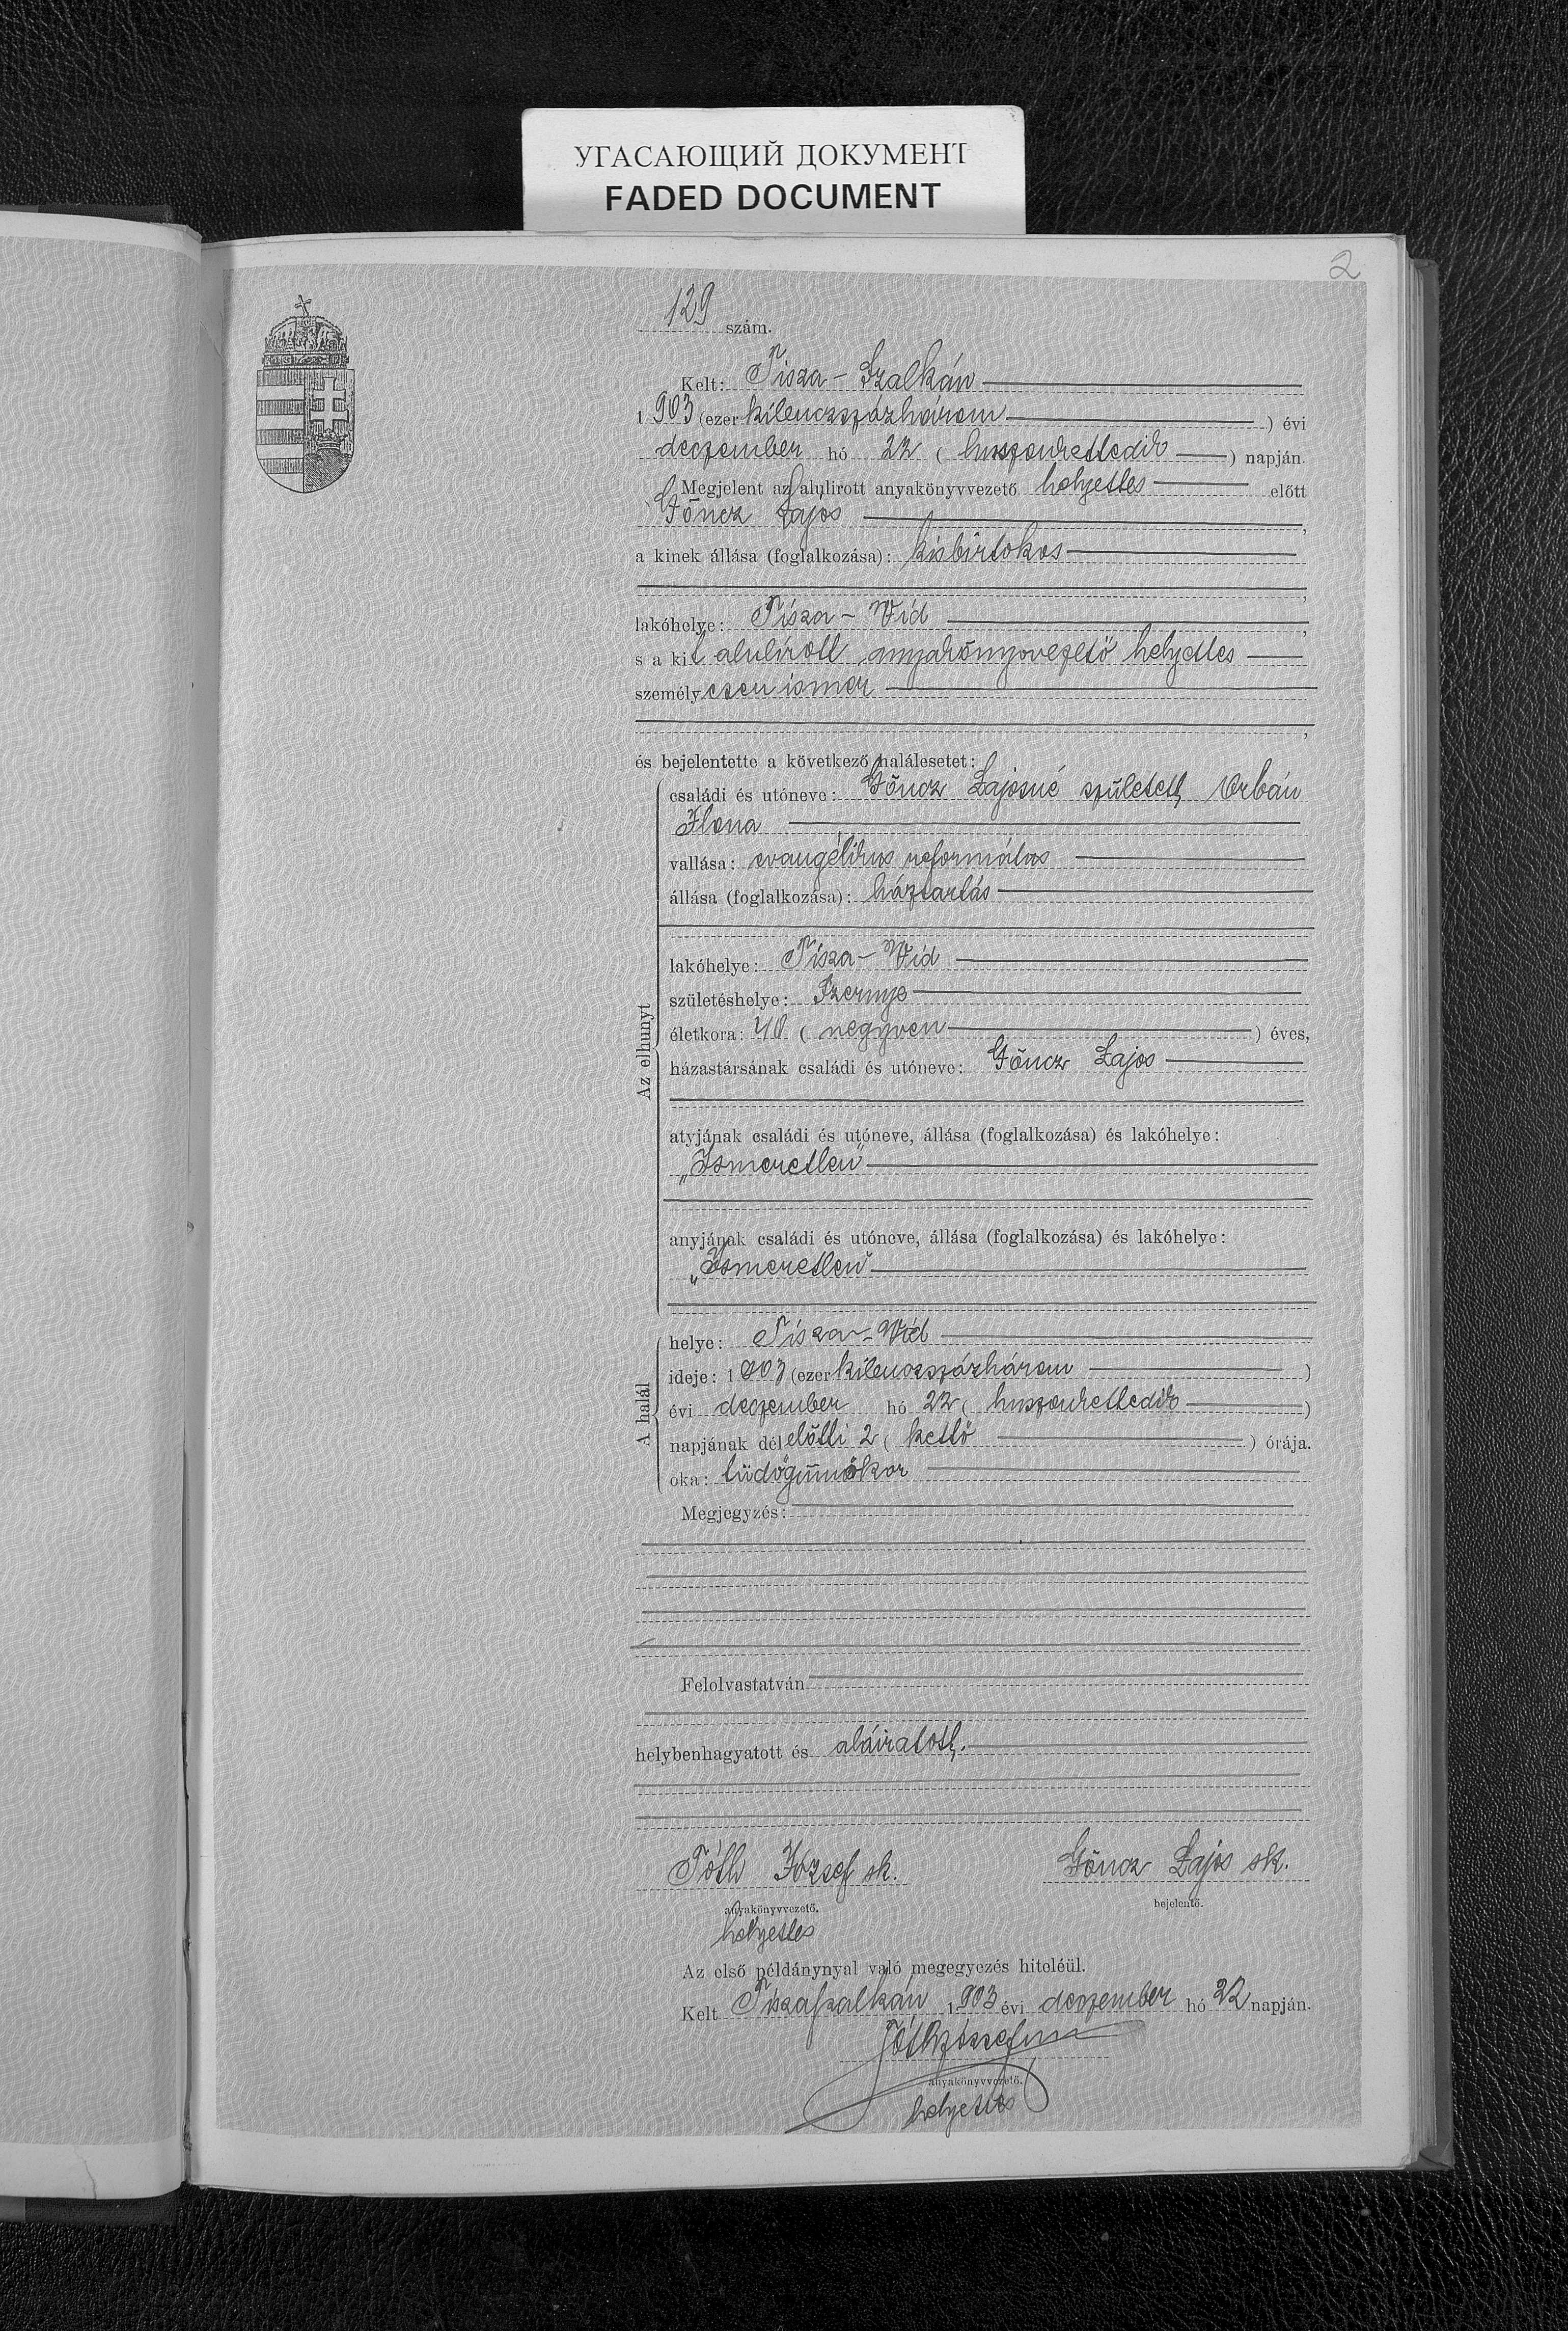 УГАСАЮЩИЙ ДОКУМЕНТ
FADED DOCUMENT
2
129 szám.
Kelt: Tisza-Szalkán
1 903 (ezer kilenczszázhárom) évi
deczember hó 22 (huszonkettedik) napján.
Megjelent az alulirott anyakönyvvezető helyettes előtt
Göncz Lajos,
a kinek állása (foglalkozása): kisbirtokos
,
lakóhelye: Tisza-Vid,
s a kit alulírott anyakönyvvezető helyettes
személyesen ismer
,
és bejelentette a következő halálesetet:
családi és utóneve: Göncz Lajosné született Orbán
Ilona
vallása: evangélikus református
állása (foglalkozása): háztartás
lakóhelye: Tisza-Vid
születéshelye: Szernye
életkora: 40 (negyven) éves,
házastársának családi és utóneve: Göncz Lajos
atyjának családi és utóneve, állása (foglalkozása) és lakóhelye:
„Ismeretlen"
anyjának családi és utóneve, állása (foglalkozása) és lakóhelye:
„Ismeretlen"
Az elhunyt
helye: Tisza-Vid
ideje: 1 903 (ezer kilenczszázhárom)
évi deczember hó 22 (huszonkettedik)
napjának délelőtti 2 (kettő) órája.
oka: tüdőgümőkor
A halál
Megjegyzés:
Felolvastatván
helybenhagyatott és aláiratott.
Tóth József sk. Göncz Lajos sk.
anyakönyvvezető. bejelentő.
helyettes
Az első példánynyal való megegyezés hiteléül.
Kelt Tiszaszalkán 1903 évi deczember hó 22 napján.
Tóth József
anyakönyvvezető.
helyettes